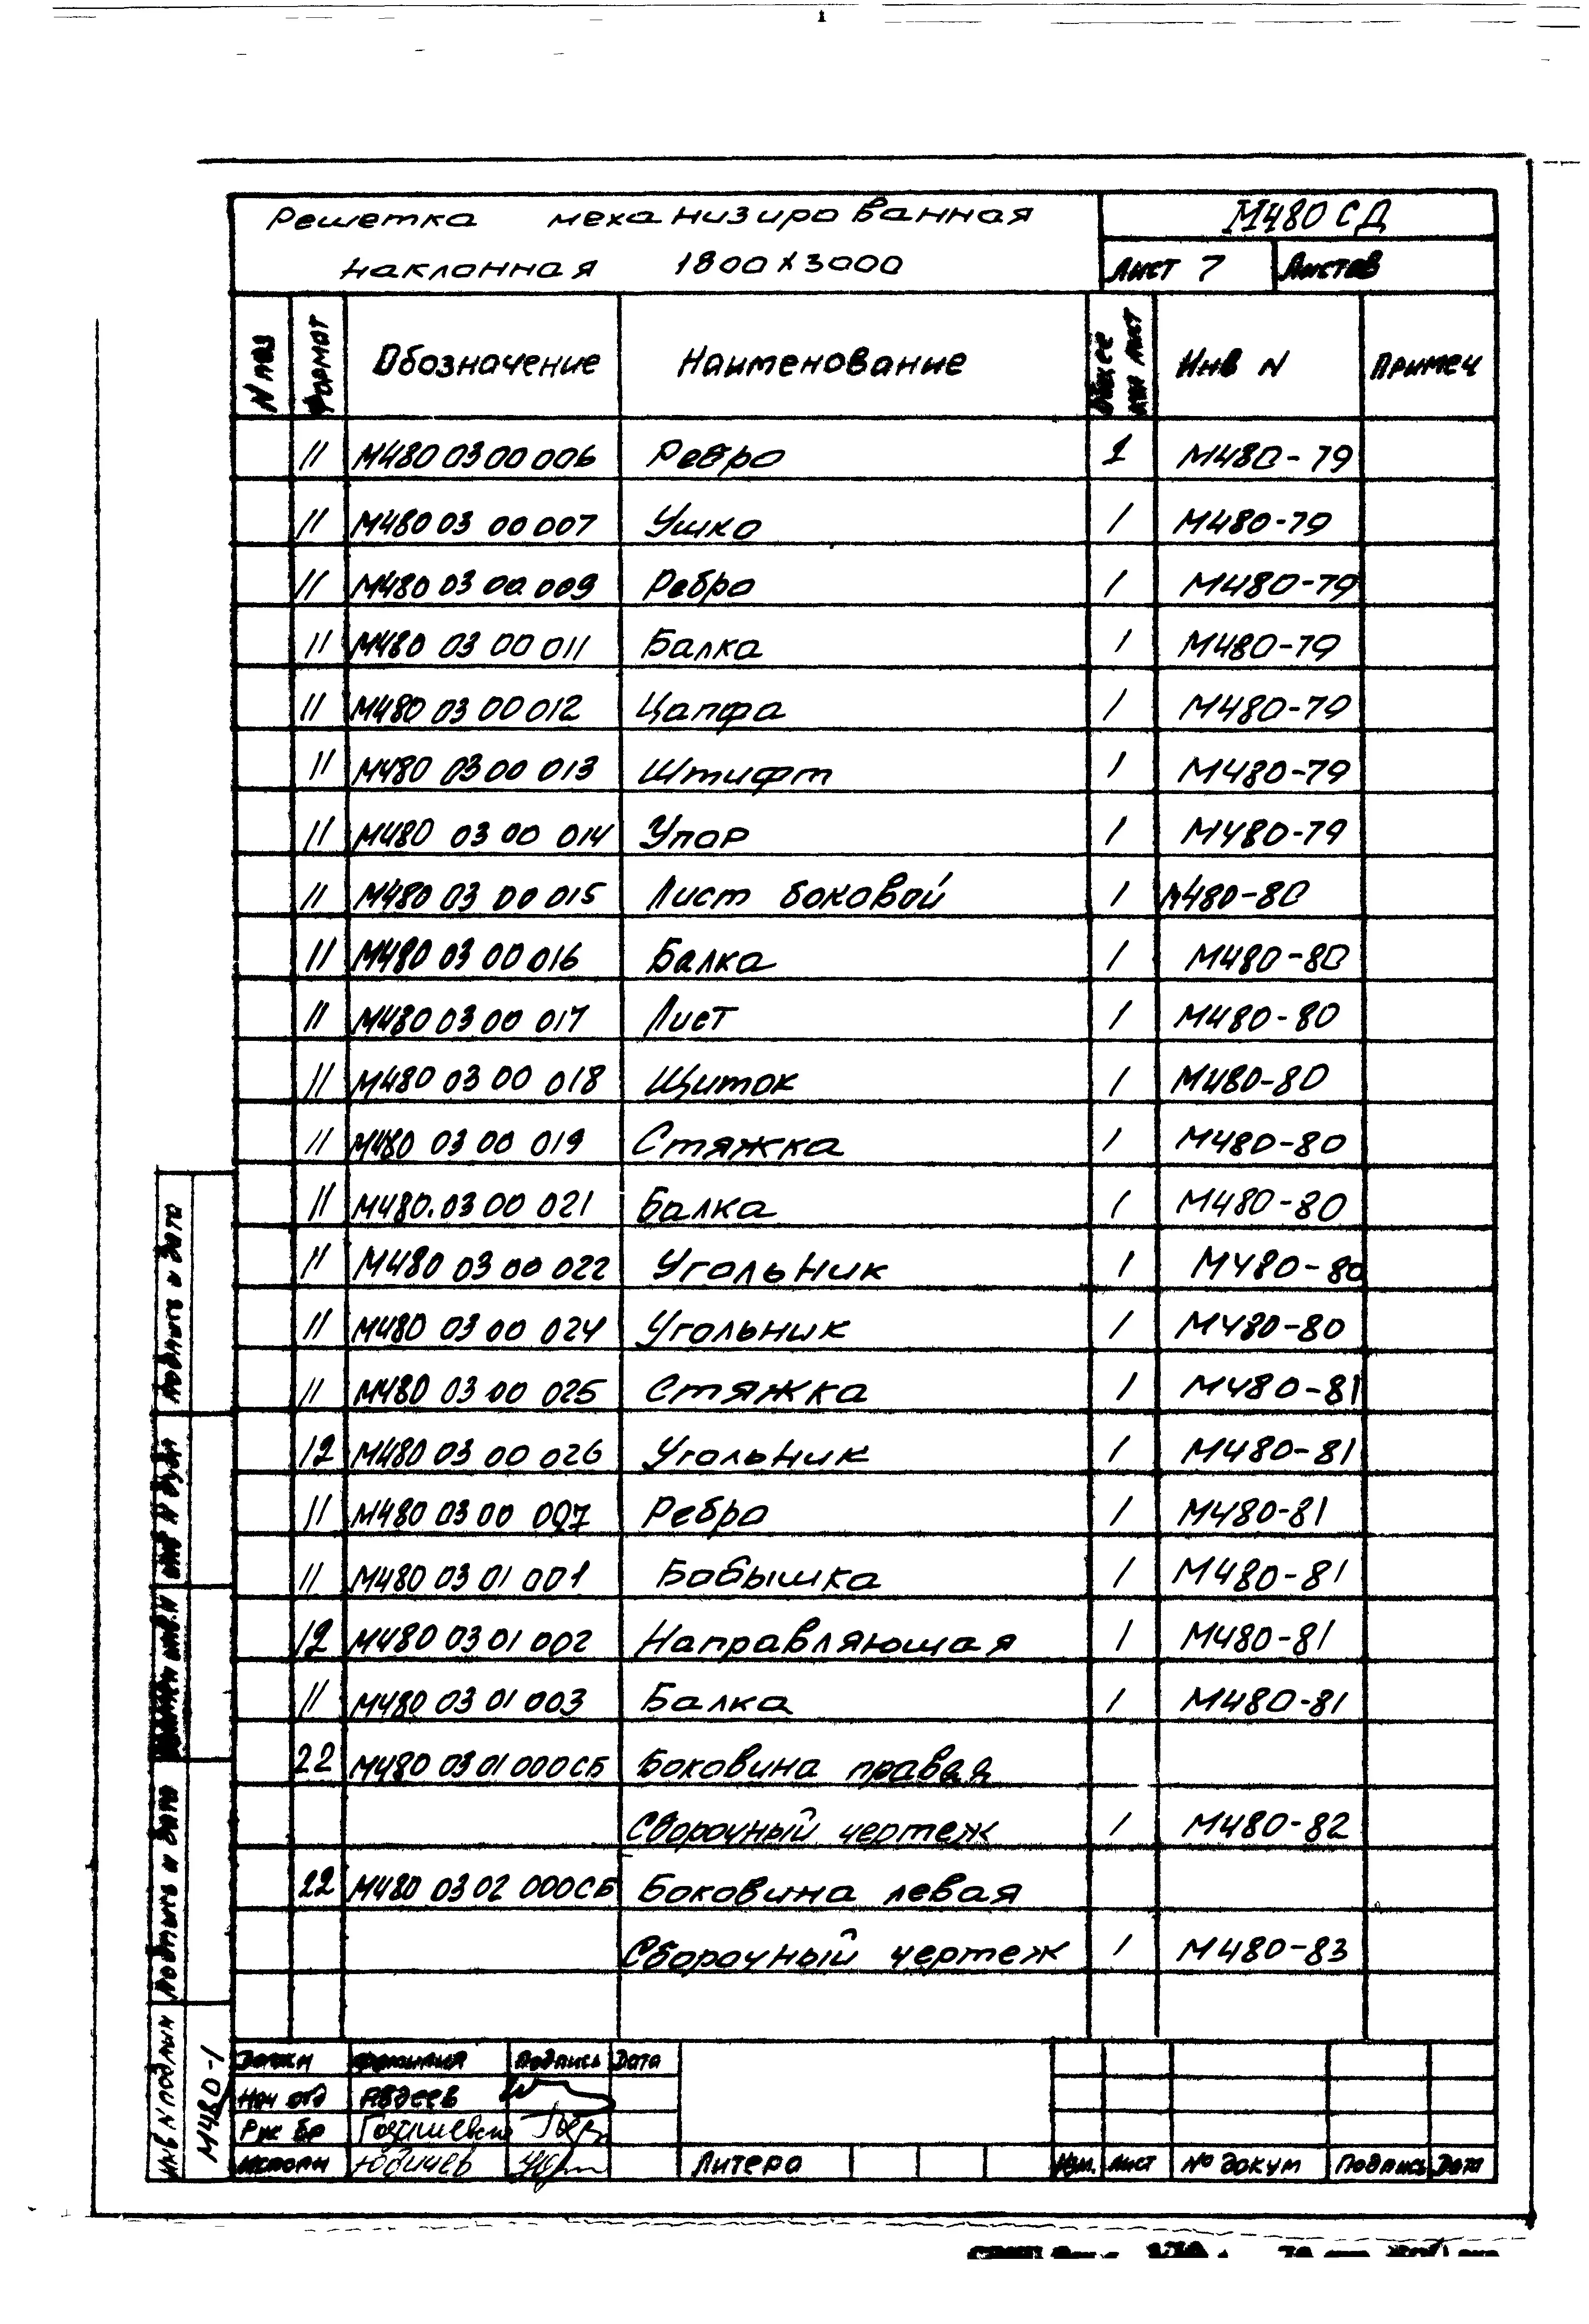 Решетка механизированная
наклонная 1800х3000
М480 СД
Лист 7 Листов
N поз Формат Обозначение Наименование Инв N Примеч
11 М480 03 00 006 Ребро 1 М480-79
11 М480 03 00 007 Ушко 1 М480-79
11 М480 03 00 009 Ребро 1 М480-79
11 М480 03 00 011 Балка 1 М480-79
11 М480 03 00 012 Цапфа 1 М480-79
11 М480 03 00 013 Штифт 1 М480-79
11 М480 03 00 014 Упор 1 М480-79
11 М480 03 00 015 Лист боковой 1 М480-80
11 М480 03 00 016 Балка 1 М480-80
11 М480 03 00 017 Лист 1 М480-80
11 М480 03 00 018 Щиток 1 М480-80
11 М480 03 00 019 Стяжка 1 М480-80
11 М480.03 00 021 Балка 1 М480-80
11 М480 03 00 022 Угольник 1 М480-80
11 М480 03 00 024 Угольник 1 М480-80
11 М480 03 00 025 Стяжка 1 М480-81
12 М480 03 00 026 Угольник 1 М480-81
11 М480 03 00 Ребро 1 М480-81
11 М480 03 01 001 Бобышка 1 М480-81
12 М480 03 01 002 Направляющая 1 М480-81
11 М480 03 01 003 Балка 1 М480-81
22 М480 03 01 000СБ Боковина правая
Сборочный чертеж 1 М480-82
22 М480 03 02 000СБ Боковина левая
Сборочный чертеж 1 М480-83
Должн Фамилия Подпись Дата
Нач отд Авдеев
Рук бр
Исполн Юдичев
Литера
Изм. Лист № докум Подпись Дата
Подпись и дата
Инв N дубл
Взамен инв.N
Подпись и дата
Инв N подлин
М480-1